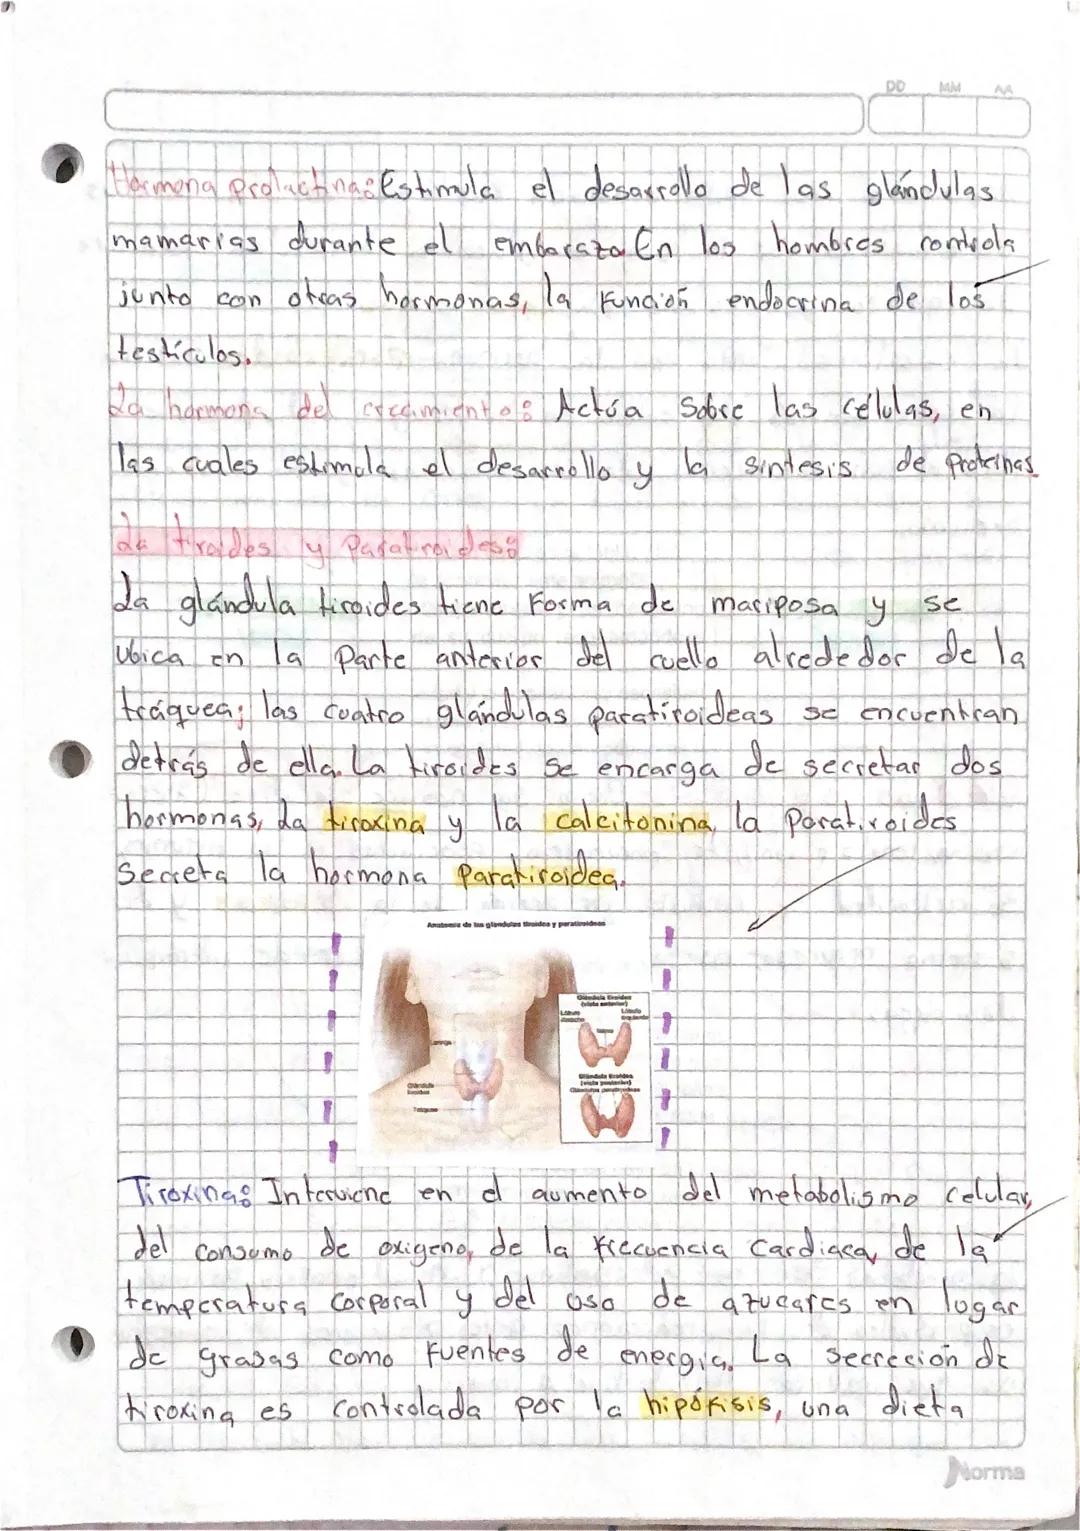 DD MM AA
Hormona prolactina: Estimula el desarrollo de las glándulas
mamarias durante el embarazo. En los hombres controla
junto con otras hormonas, la función endocrina de los
testículos.
La hormona del crecimiento: Actúa sobre las células, en
las cuales estimula el desarrollo y la sintesis de proteinas
La tiroides y Paratiroides:
La glándula tiroides tiene forma de mariposa y se
ubica en la parte anterior del cuello alrededor de la
tráquea; las cuatro glándulas paratiroideas se encuentran
detrás de ella. La tiroides se encarga de secretar dos
hormonas, La tiroxina y la calcitonina, la paratiroides
secreta la hormona Paratiroidea.
Anatomía de las glándulas tiroides y paratiroideas
Glándula tiroides
(vista anterior)
Lóbulo derecho
Lóbulo izquierdo
Laringe
Glándula tiroides
(vista posterior)
Glándulas paratiroideas
Glándula tiroides
Tráquea
Tiroxina: Interviene en el aumento del metabolismo celular,
del consumo de oxigeno, de la frecuencia cardiaca, de la
temperatura corporal y del uso de azucares en lugar
de grasas como fuentes de energia. La secreción de
tiroxina es controlada por la hipófisis, una dieta
Norma